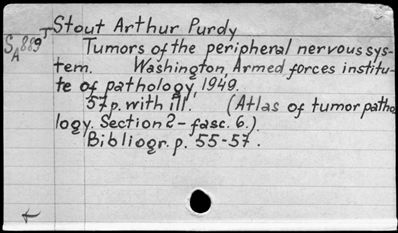 Stout Arthur Purdy
SA889
Tumors of the peripheral nervous sys-
tem. Washington, Armed forces institu-
te of pathology, 1949.
57p. with ill. (Atlas of tumor patho
logy. Section 2 - fasc. 6.).
Bibliogr. p. 55-57.